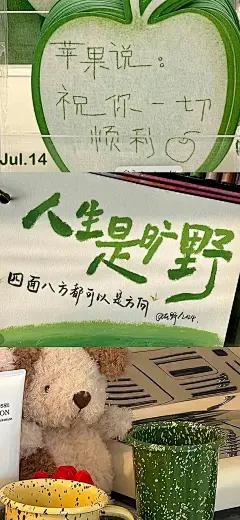 苹果说：
祝你一切
顺利
Jul.14
人生
是旷野
四面八方都可以是方向
ON